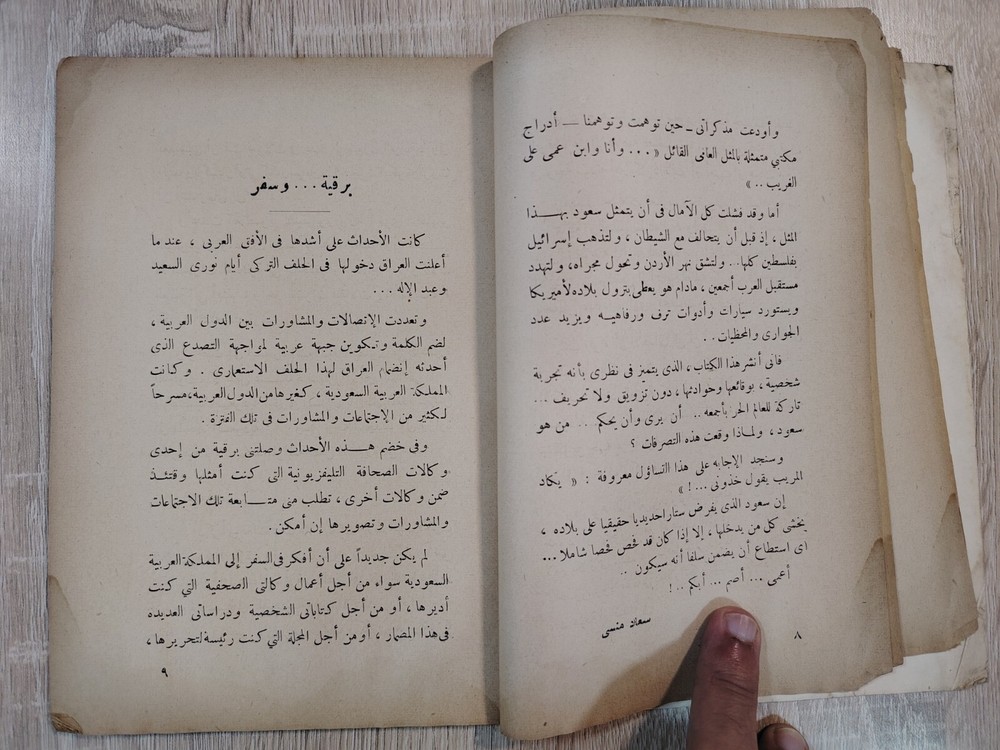 وأودعت مذكراتى ـ حين توهمت وتوهمنا — أدراج
مكتبي متمثلة بالمثل العامى القائل « ... وأنا وابن عمى على
الغريب .. »
أما وقد فشلت كل الآمال فى أن يتمثل سعود بهـــذا
المثل ، إذ قبل أن يتحالف مع الشيطان ، ولتذهب إسرائيل
بفلسطين كلها .. ولتشق نهر الأردن وتحول مجراه، ولتهدد
مستقبل العرب أجمعين ، مادام هو يعطى بترول بلاده لأميريكا
ويستورد سيارات وأدوات ترف ورفاهيــه ويزيد عدد
الجوارى والمحظيات ..
فانى أنشر هذا الكتاب، الذى يتميز فى نظرى بأنه تجربة
شخصية ، بوقائعها وحوادثها، دون تزويق ولا تحريف ...
تاركة للعالم الحر بأجمعه .. أن يرى وأن يحكم ... من هو
سعود ، ولماذا وقعت هذه التصرفات ؟
وسنجد الإجابه على هذا التساؤل معروفة : « يكاد
المريب يقول خذونى ...! »
إن سعود الذى يفرض ستارا حديديا حقيقيا على بلاده ،
يخشى كل من يدخلها ، إلا إذا كان قد فحص فحصا شاملا ...
اى استطاع أن يضمن سلفا أنه سيكون ..
أعمى ... أصم ... أبكم ..!
سعاد منسى
٨
برقية ... وسفر
كانت الأحداث على أشدها فى الأفق العربى ، عندما
أعلنت العراق دخولها فى الحلف التركى أيام نورى السعيد
وعبد الإله ...
وتعددت الإتصالات والمشاورات بين الدول العربية ،
لضم الكلمة وتكوين جبهة عربية لمواجهة التصدع الذى
أحدثه إنضمام العراق لهذا الحلف الاستعمارى . وكانت
المملكة العربية السعودية ، كغيرها من الدول العربية، مسرحاً
لكثير من الإجتماعات والمشاورات فى تلك الفترة .
وفى خضم هــذه الأحداث وصلتنى برقية من إحدى
وكالات الصحافة التليفزيونية التى كنت أمثلها وقتئذ
ضمن وكالات أخرى ، تطلب منى متـــابعة تلك الاجتماعات
والمشاورات وتصويرها إن أمكن .
لم يكن جديداً على أن أفكر فى السفر إلى المملكة العربية
السعودية سواء من أجل أعمال وكالتى الصحفية التي كنت
أديرها ، أو من أجل كتاباتى الشخصية ودراساتى العديده
فى هذا المضمار ، أو من أجل المجلة التي كنت رئيسة لتحريرها ،
٩